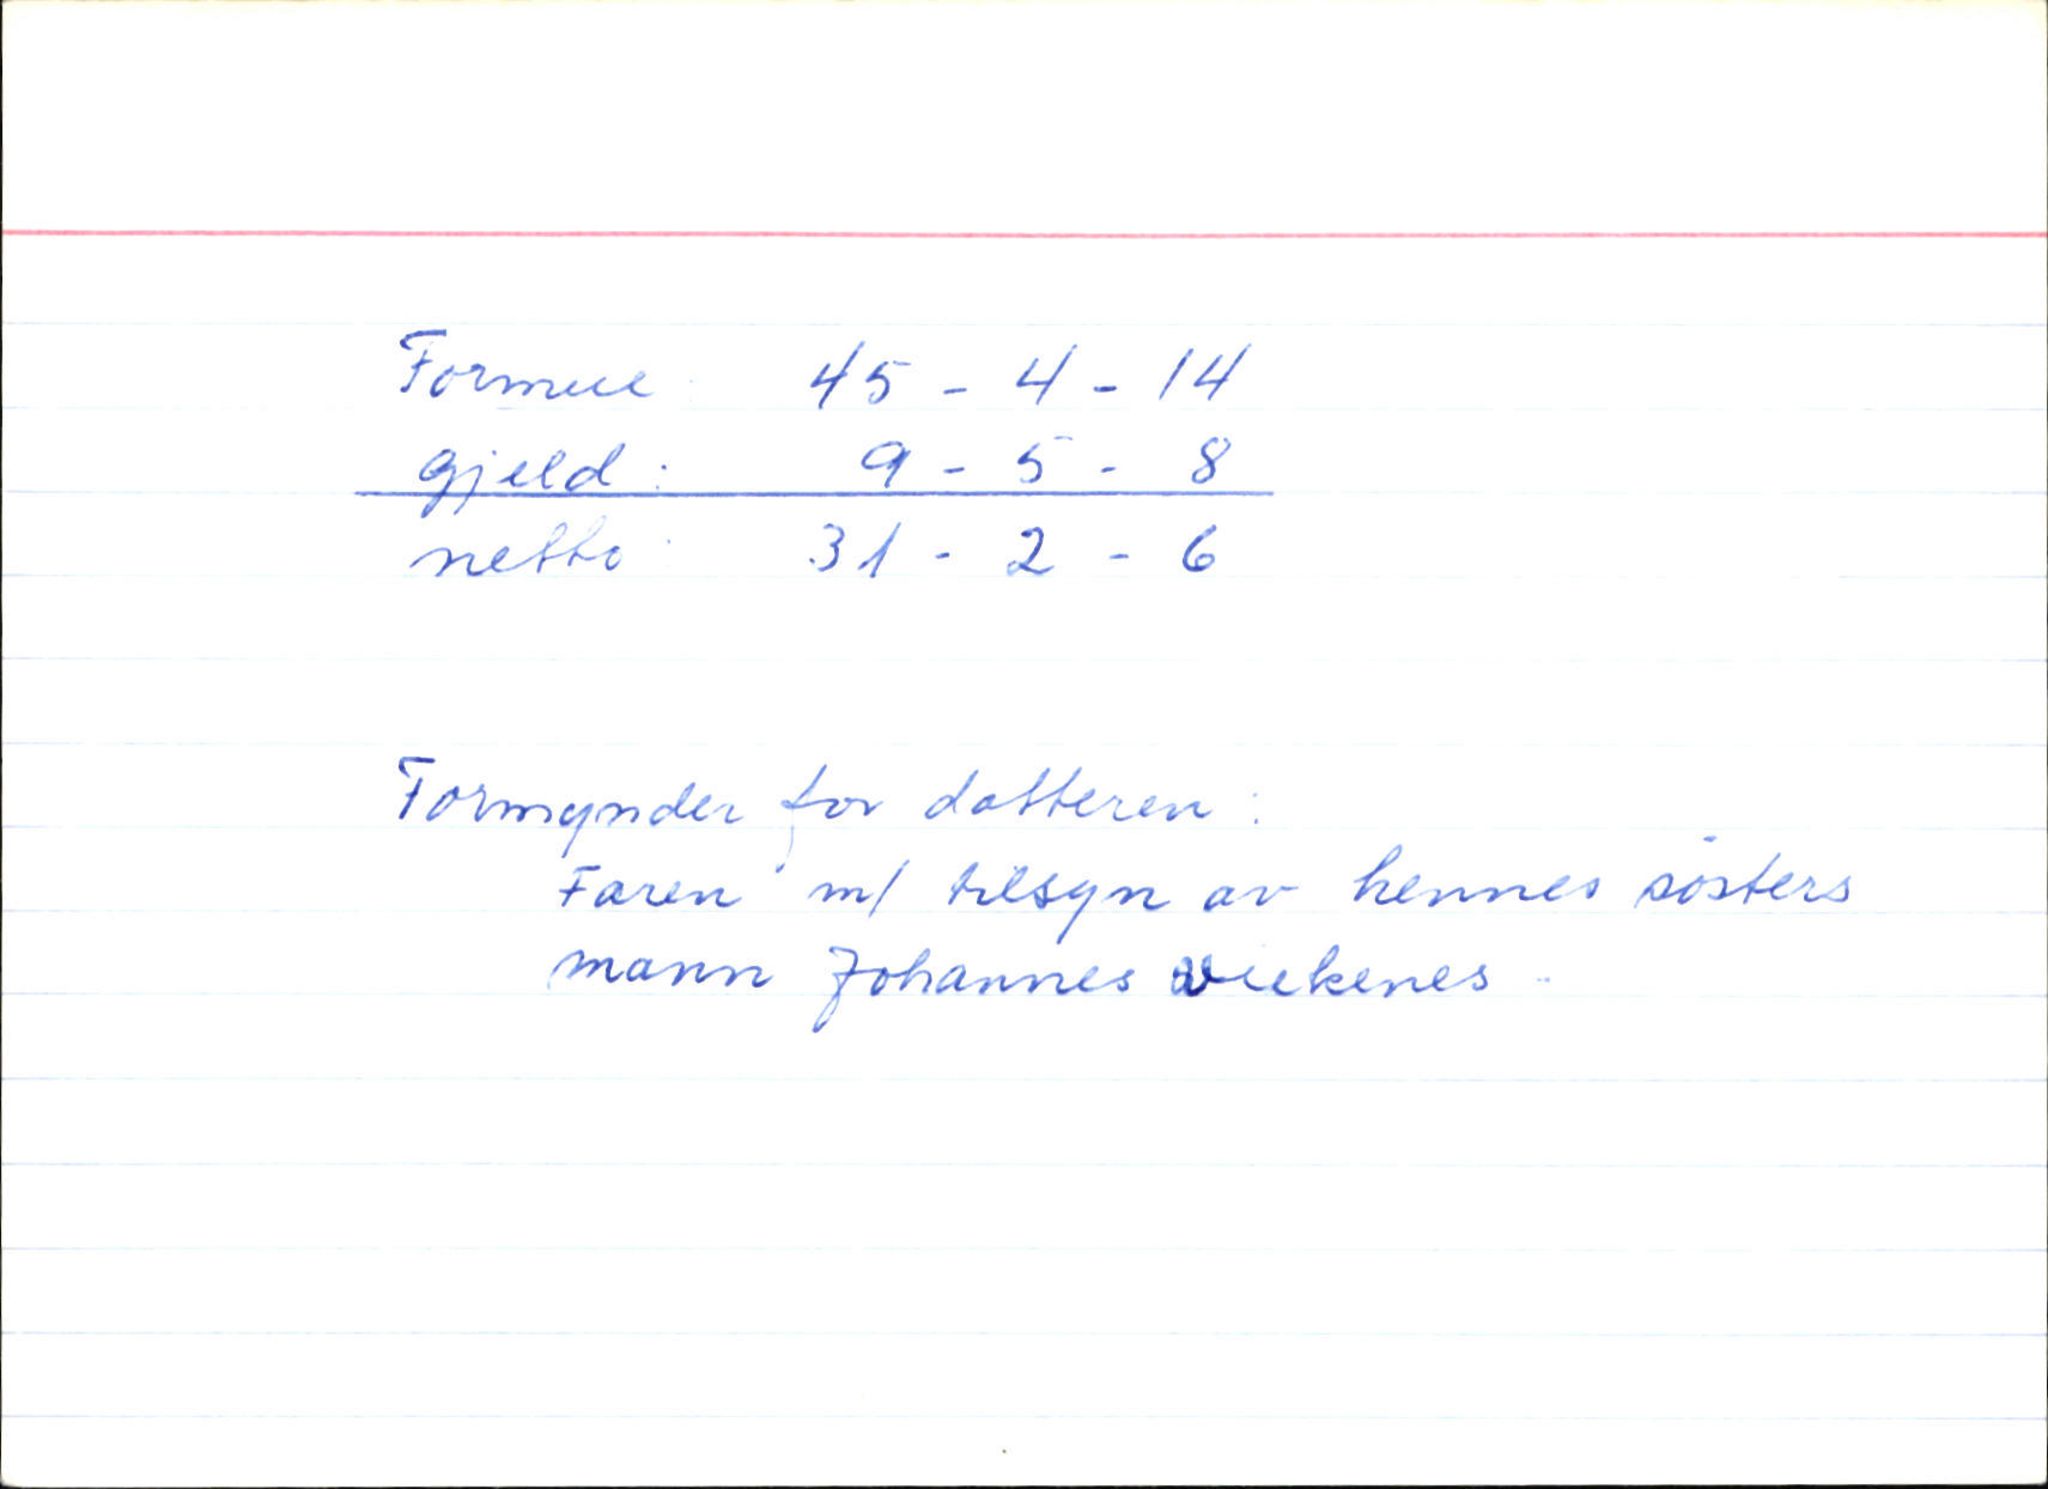 Formue: 45 - 4 - 14
gjeld: 9 - 5 - 8
netto: 31 - 2 - 6
Formynder for datteren:
Faren m/ tilsyn av hennes sösters
mann Johannes